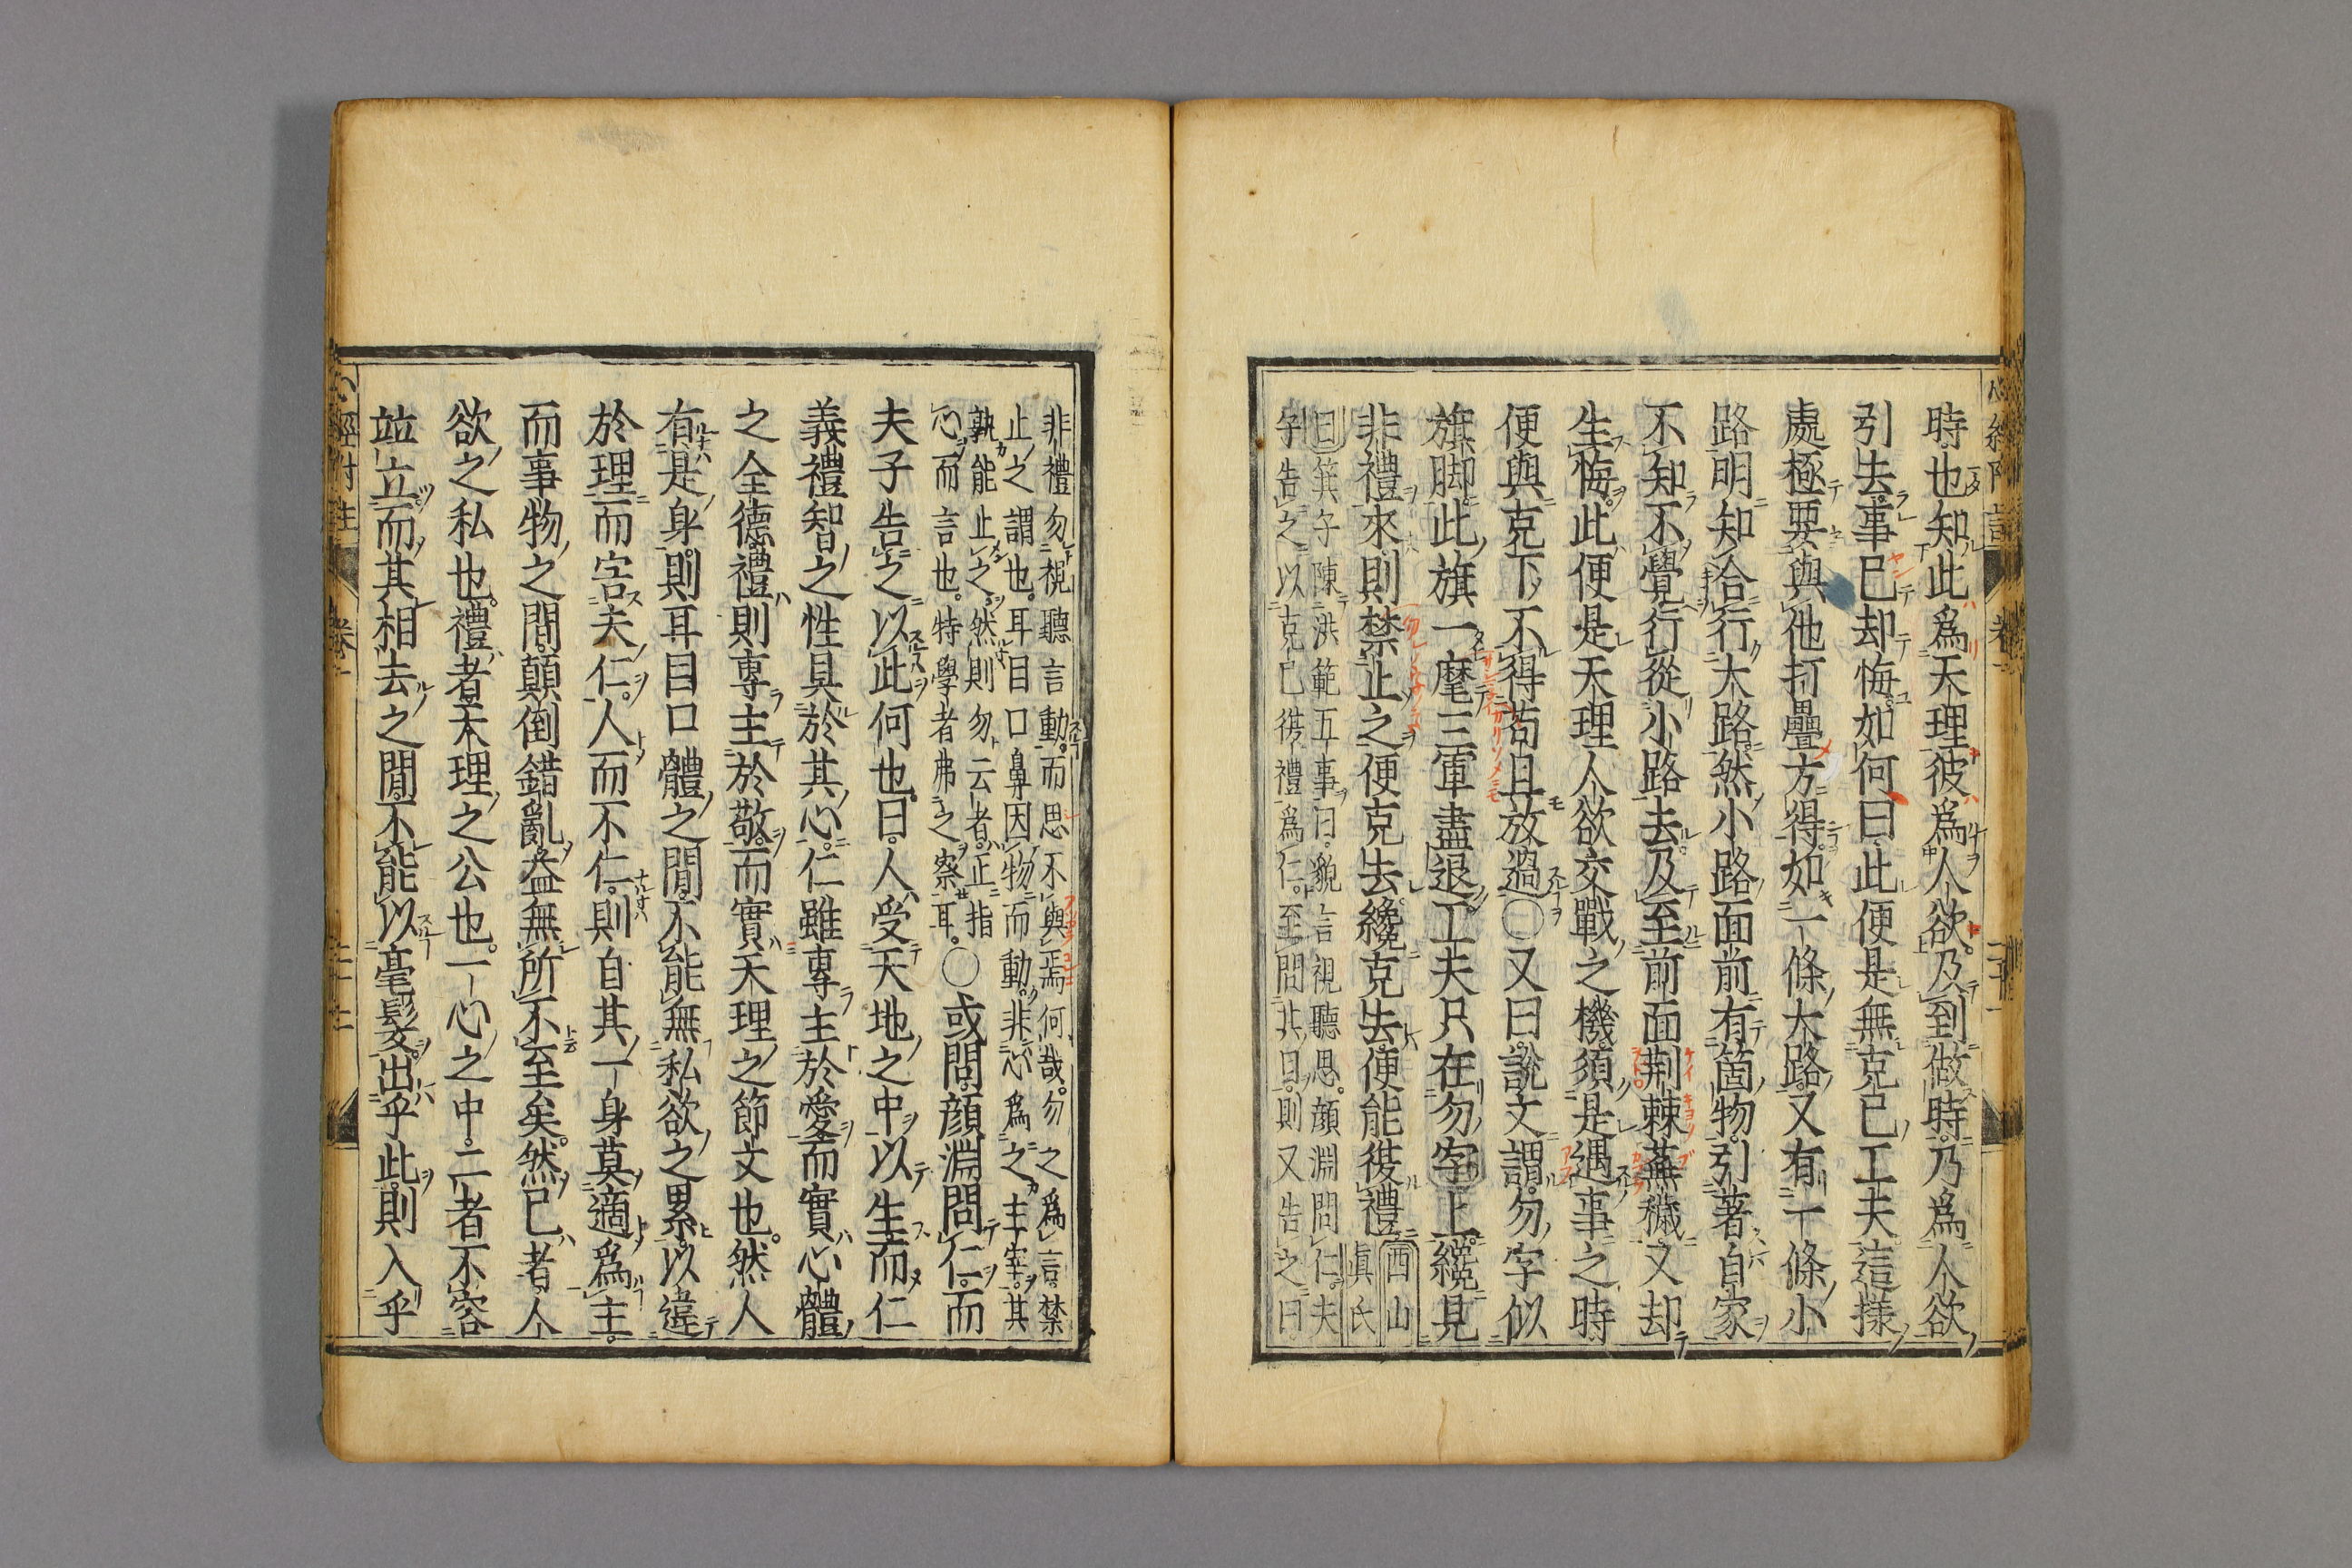 時也知此爲天理彼爲人欲及到做時乃爲人欲
引去事已却悔如何曰此便是無克己工夫這樣
處極要與他打疊方得如一條大路又有一條小
路明知合行大路然小路面前有箇物引著自家
不知不覺行從小路去及至前面荆棘蕪穢又却
生悔此便是天理人欲交戰之機須是遇事之時
便與克下不得苟且放過〇又曰說文謂勿字似
旗脚此旗一麾三軍盡退工夫只在勿字上纔見
非禮來則禁止之便克去纔克去便能復禮
西山
眞氏
曰箕子陳洪範五事曰貌言視聽思顔淵問仁夫
子告之以克己復禮爲仁至問其目則又告之曰
非禮勿視聽言動而思不與焉何哉勿之爲言禁
止之謂也耳目口鼻因物而動非心爲之主宰其
孰能止之然則勿云者正指
心而言也特學者弗之察耳〇或問顔淵問仁而
夫子告之以此何也曰人受天地之中以生而仁
義禮智之性具於其心仁雖專主於愛而實心體
之全德禮則專主於敬而實天理之節文也然人
有是身則耳目口體之間不能無私欲之累以違
於理而害夫仁人而不仁則自其一身莫適爲主
而事物之間顛倒錯亂益無所不至矣然己者人
欲之私也禮者天理之公也一心之中二者不容
竝立而其相去之間不能以毫髮出乎此則入乎
心經附註
卷一